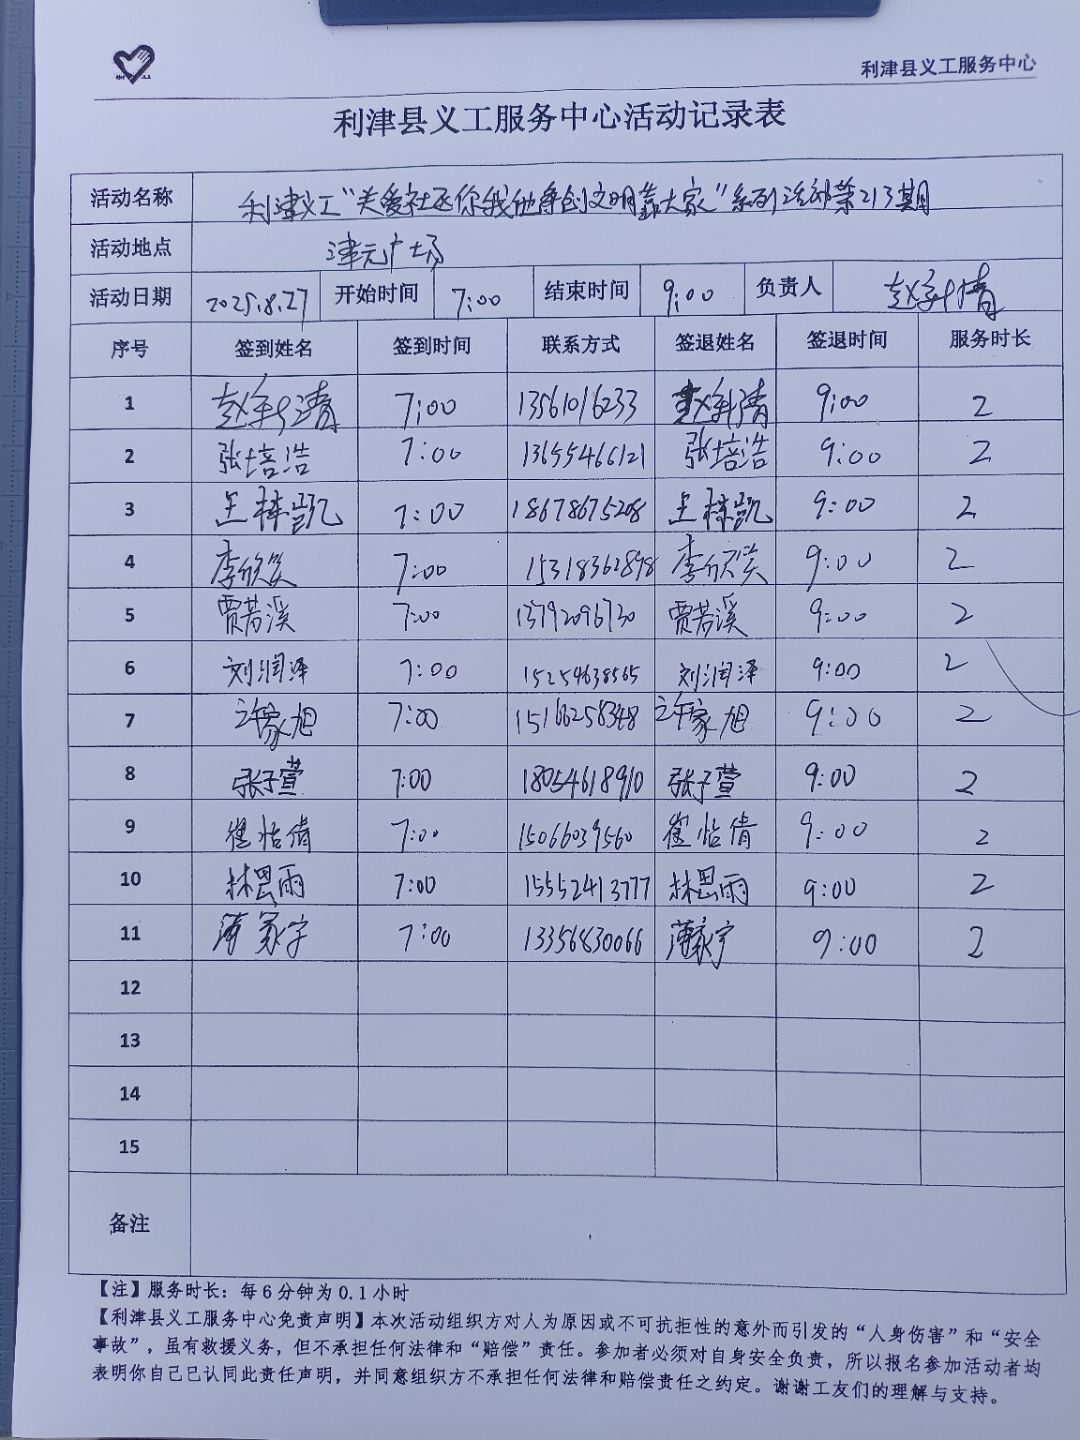 利津县义工服务中心
利津县义工服务中心活动记录表
活动名称 利津义工“关爱社区你我他争创文明靠大家”系列活动第213期
活动地点 津元广场
活动日期 2025.8.27 开始时间 7:00 结束时间 9:00 负责人 赵
序号 签到姓名 签到时间 联系方式 签退姓名 签退时间 服务时长
1 赵 7:00 13561016233 赵 9:00 2
2 张培浩 7:00 13655466121 张培浩 9:00 2
3 王栋凯 7:00 18678675208 王栋凯 9:00 2
4 李欣 7:00 15318362898 李欣 9:00 2
5 贾若溪 7:00 13792096730 贾若溪 9:00 2
6 刘润泽 7:00 15254638565 刘润泽 9:00 2
7 许家旭 7:00 15166258348 许家旭 9:00 2
8 张子萱 7:00 18054618910 张子萱 9:00 2
9 崔怡倩 7:00 15066039560 崔怡倩 9:00 2
10 林思雨 7:00 15552413777 林思雨 9:00 2
11 薄家宇 7:00 13356830066 薄家宇 9:00 2
12
13
14
15
备注
【注】服务时长：每6分钟为0.1小时
【利津县义工服务中心免责声明】本次活动组织方对人为原因或不可抗拒性的意外而引发的“人身伤害”和“安全
事故”，虽有救援义务，但不承担任何法律和“赔偿”责任。参加者必须对自身安全负责，所以报名参加活动者均
表明你自己已认同此责任声明，并同意组织方不承担任何法律和赔偿责任之约定。谢谢工友们的理解与支持。